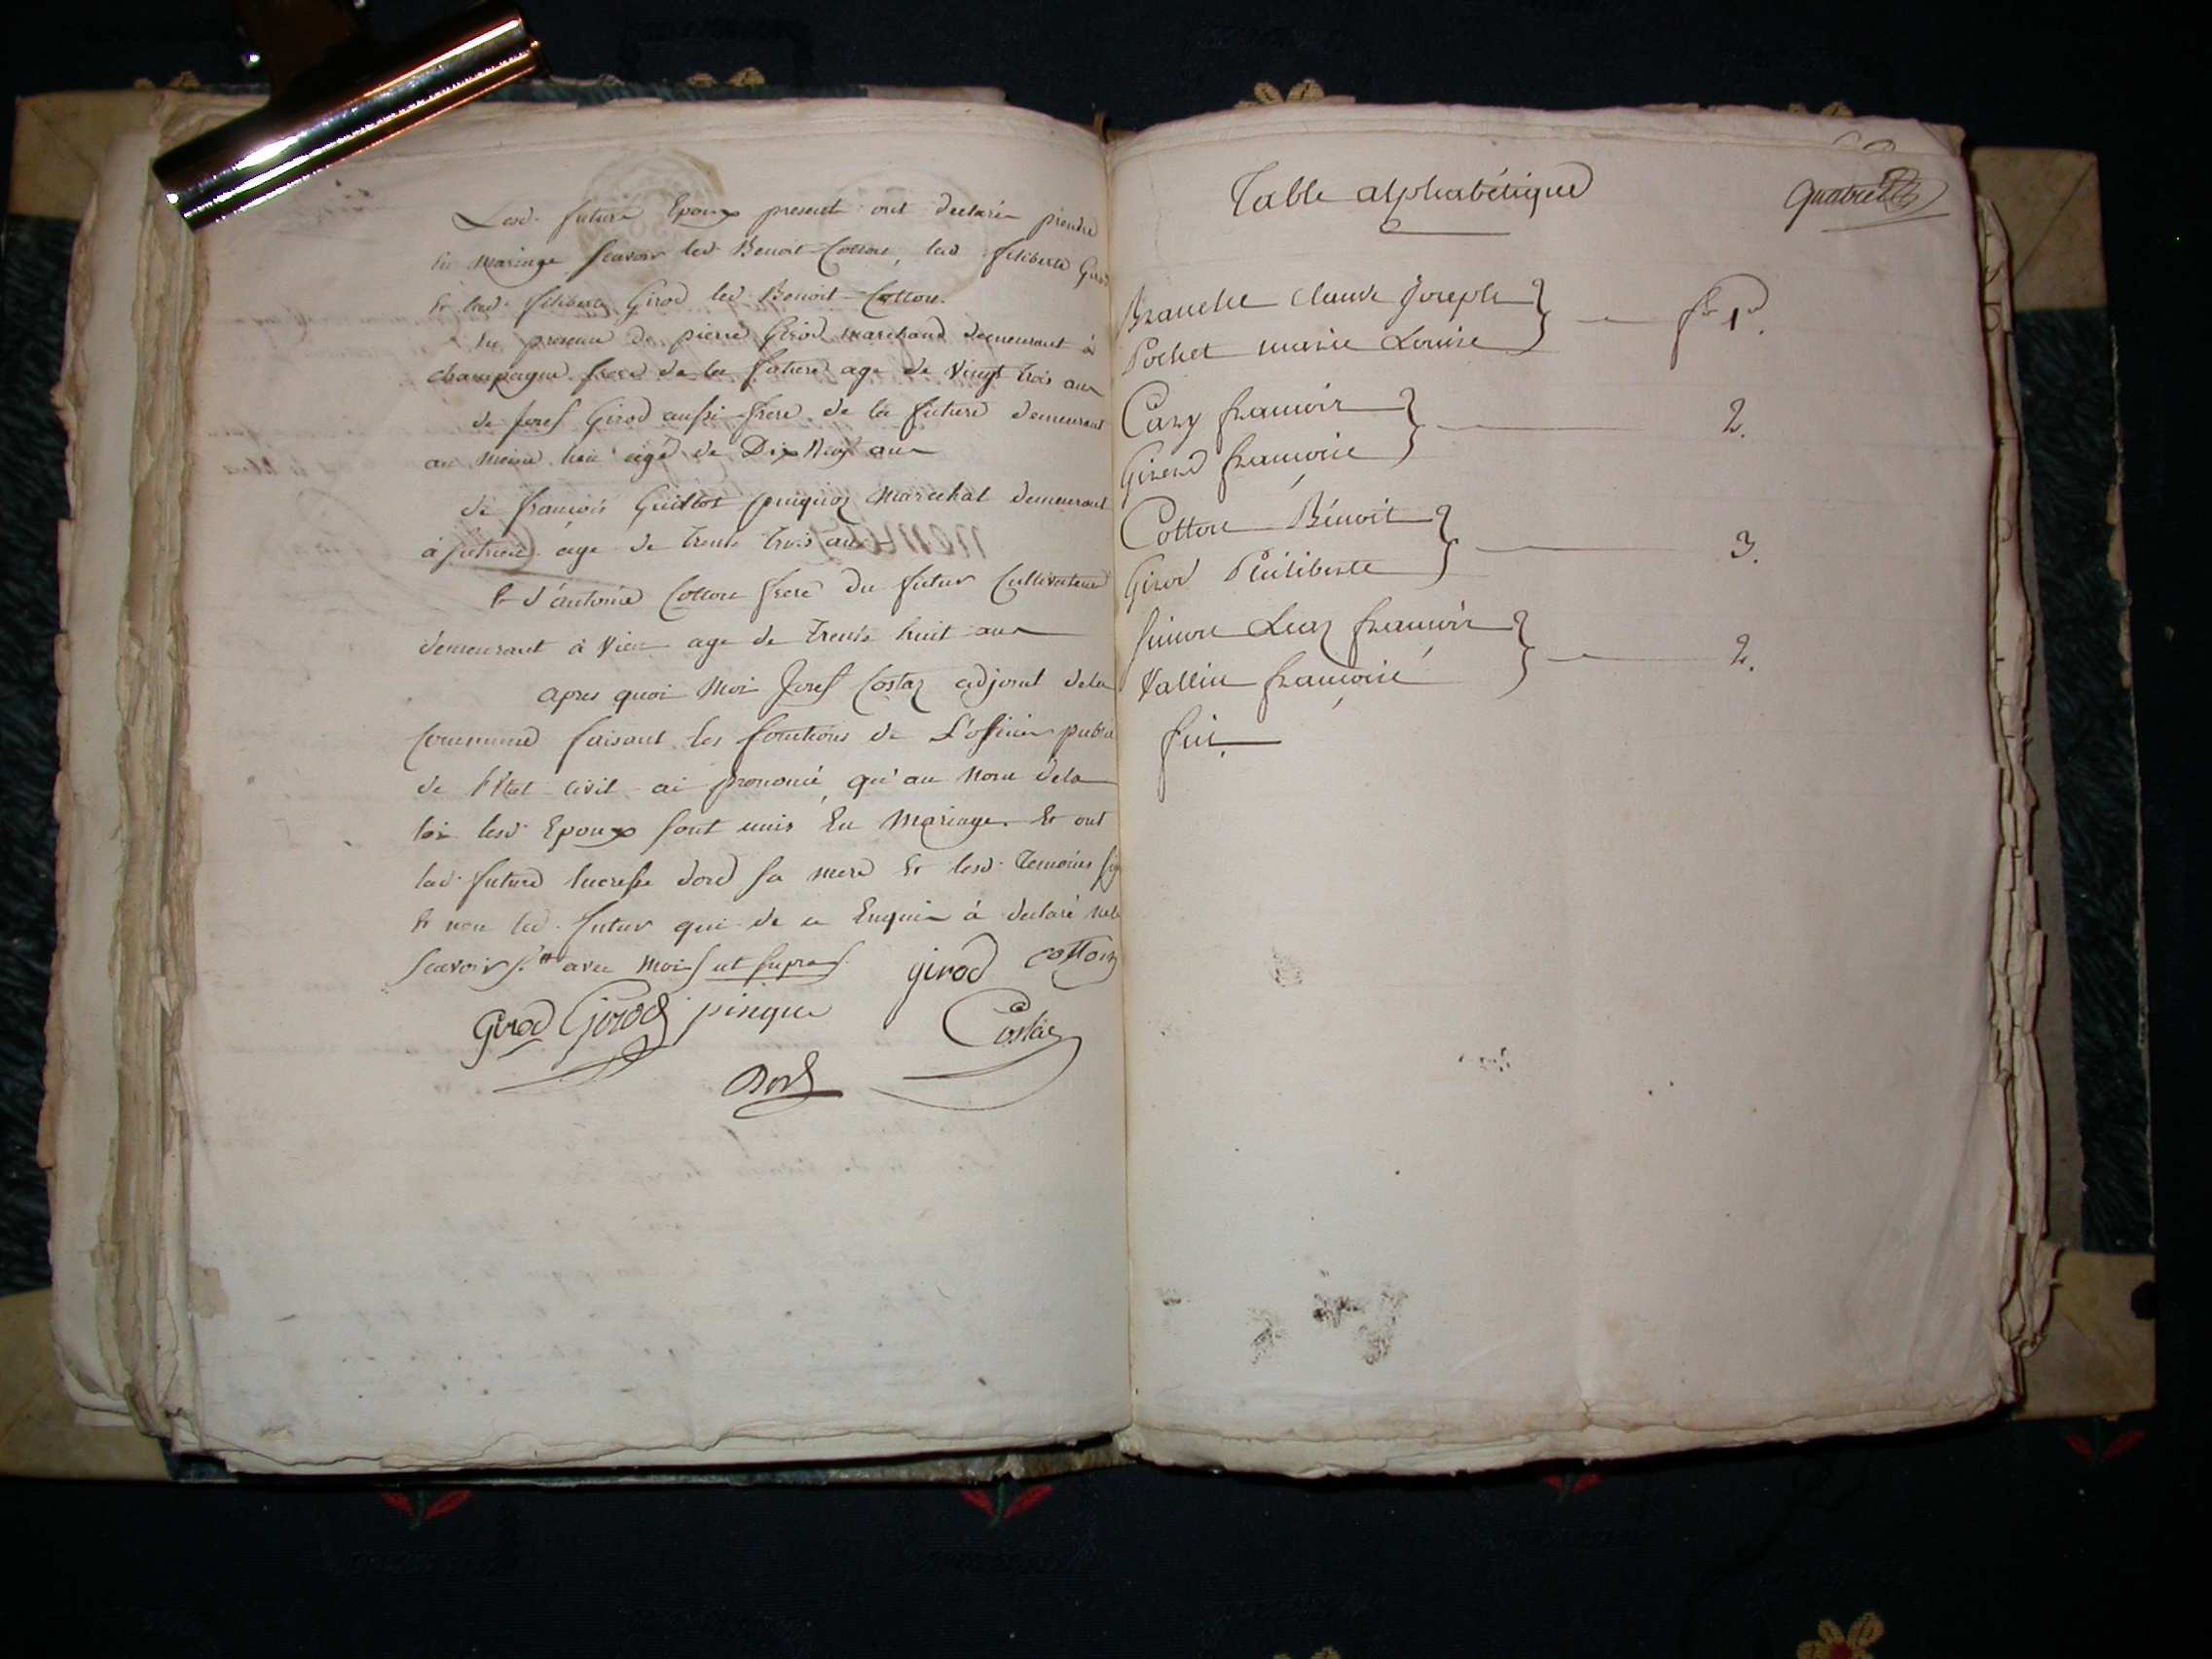 Lesd. futurs Epoux present ont declarés prendre
En mariage scavoir led Benoit Cotton, lad filiberte Girod
Et lad. filiberte Girod led. Benoit Cotton.
En presence de pierre Girod marchand demeurant à
champagne frere de la future age de vingt trois ans
de Josef Girod aussi frere de la future demeurant
au meme lieu agé de Dix Neuf ans
de francois Guillot marechal demeurant
à age de trente trois ans
Et d'antoine Cotton frere du futur Cultivateur
demeurant à Vieu age de trente huit ans
apres quoi Moi Josef Costaz adjoint dela
Commune faisant les fonctions de L'officier public
de l'Etat civil ai prononcé, qu'au Nom dela
loi lesd. Epoux sont unis En Mariage. Et ont
lad. future lucresse dord sa mere Et lesd. temoins
Et non led. futur qui de ce Enquis à declaré
Scavoir avec Moi ut supra
girod cotton
Girod Girod pinque Costaz
Dord
Table alphabétique
Branche Claude Joseph
Pochet marie Louise
1
Cary francois
Girerd francoise
2.
Cotton Bénoit
Girod Philiberte
3.
francois
Vallin francoise
2.
fin